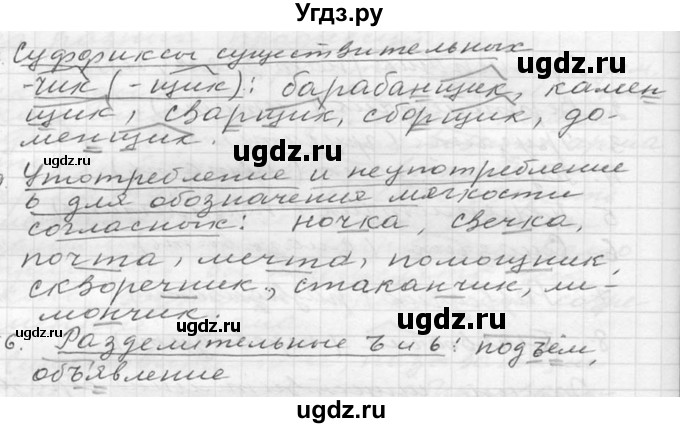 Угдз.ру
Суффиксы существительных
-чик (-щик): барабанщик, камен
щик, сварщик, сборщик, до-
менщик.
Употребление и неупотребление
ь для обозначения мягкости
согласных: ночка, свечка,
почта, мечта, помощник,
скворечник, стаканчик, ли-
мончик.
6. Разделительные ъ и ь: подъём,
объявление
ugdz.ru
ugdz.ru
ugdz.ru
ugdz.ru
ugdz.ru
ugdz.ru
ugdz.ru